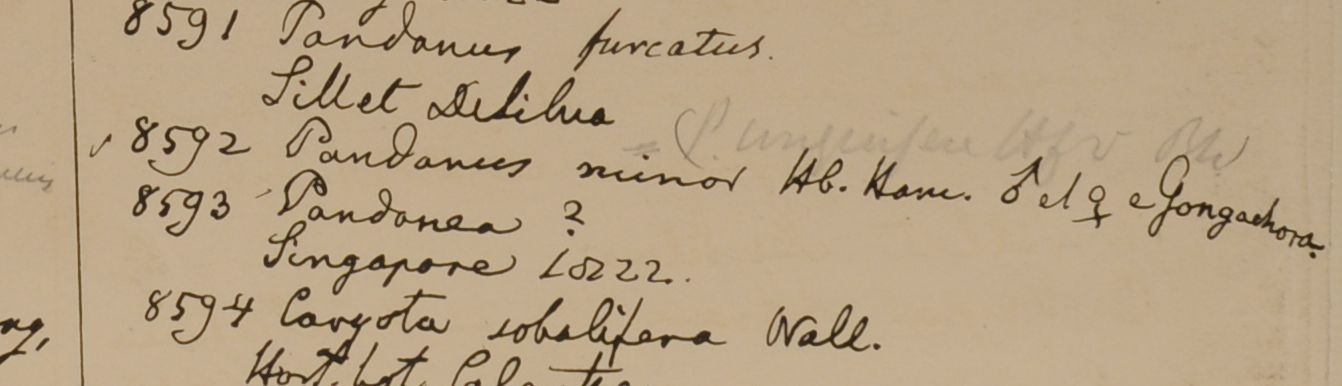 8591 Pandanus furcatus.
Sillet DeSilva
= P. unguifera Hfr
8592 Pandanus minor Hb. Ham. ♂ et ♀ e Gongachora.
8593 Pandanea ?
Singapore 1822.
8594 Caryota sobolifera Wall.
Hort. bot. Calcutta
ng,